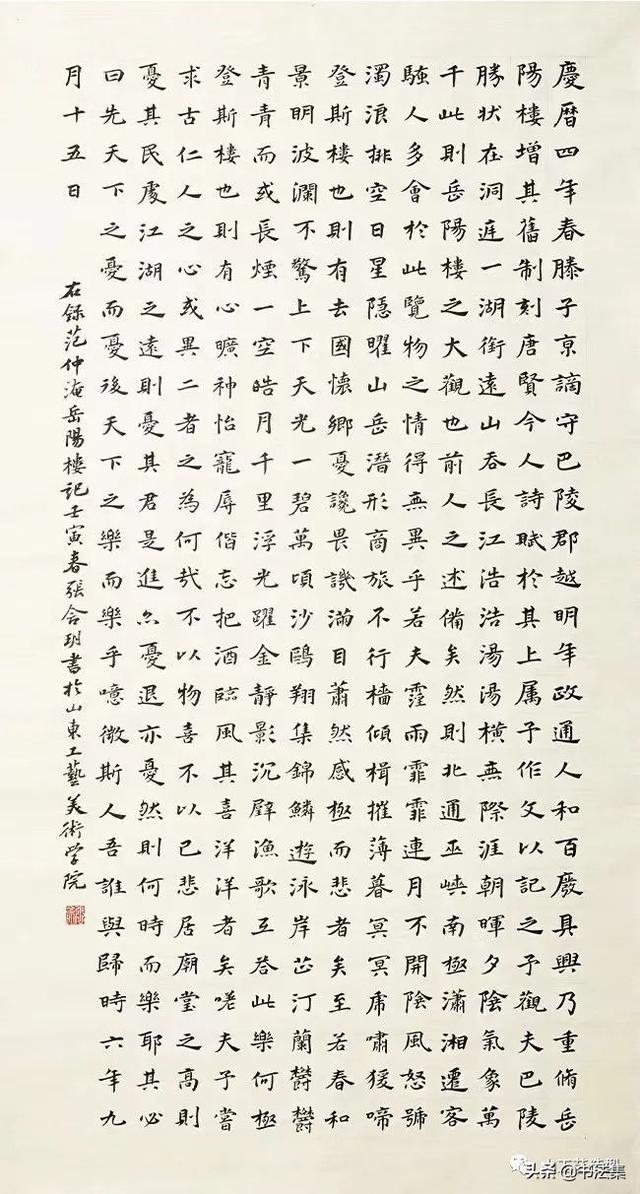 慶曆四年春滕子京謫守巴陵郡越明年政通人和百廢具興乃重脩岳
陽樓增其舊制刻唐賢今人詩賦於其上属予作文以記之予觀夫巴陵
勝狀在洞庭一湖銜遠山吞長江浩浩湯湯橫無際涯朝暉夕陰氣象萬
千此則岳陽樓之大觀也前人之述備矣然則北通巫峽南極瀟湘遷客
騷人多會於此覽物之情得無異乎若夫霪雨霏霏連月不開陰風怒號
濁浪排空日星隱曜山岳潛形商旅不行檣傾楫摧薄暮冥冥虎嘯猿啼
登斯樓也則有去國懷鄉憂讒畏譏滿目蕭然感極而悲者矣至若春和
景明波瀾不驚上下天光一碧萬頃沙鷗翔集錦鱗遊泳岸芷汀蘭鬱鬱
青青而或長煙一空皓月千里浮光躍金靜影沉璧漁歌互答此樂何極
登斯樓也則有心曠神怡寵辱偕忘把酒臨風其喜洋洋者矣嗟夫予嘗
求古仁人之心或異二者之為何哉不以物喜不以己悲居廟堂之高則
憂其民處江湖之遠則憂其君是進亦憂退亦憂然則何時而樂耶其必
曰先天下之憂而憂後天下之樂而樂乎噫微斯人吾誰與歸時六年九
月十五日
右錄范仲淹岳陽樓記壬寅春張含玥書於山東工藝美術学院
头条 @书法集